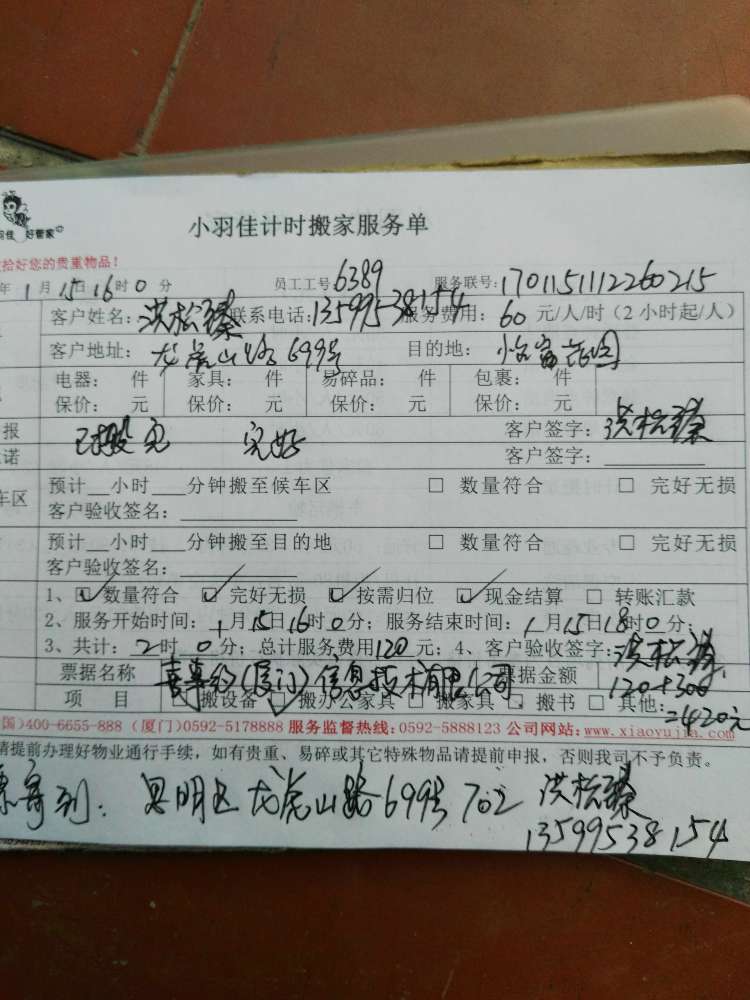 小羽佳计时搬家服务单
羽佳 好管家
拾好您的贵重物品！
年1月15日16时0分 员工工号6389 服务联号:1701151112260215
客户姓名:洪松臻 联系电话:13599538154 服务费用: 60 元/人/时（2小时起/人）
客户地址: 龙虎山路699号 目的地: 怡富花园
电器: 件 家具: 件 易碎品: 件 包裹: 件
保价: 元 保价: 元 保价: 元 保价: 元
报 已搬完 完好 客户签字: 洪松臻
诺 客户签字:
车区 预计__小时___分钟搬至候车区 □ 数量符合 □ 完好无损
客户验收签名:
预计__小时___分钟搬至目的地 □ 数量符合 □ 完好无损
客户验收签名:
1、☑数量符合 ☑完好无损 ☑按需归位 ☑现金结算 □ 转账汇款
2、服务开始时间: 1月15日16时0分; 服务结束时间: 1月15日18时0分;
3、共计: 2时 0分; 总计服务费用120元; 4、客户验收签字: 洪松臻
票据名称 喜喜约(厦门)信息技术有限公司 票据金额 120+300
项 目 □搬设备 ☑搬办公家具 □ 搬家具 □ 搬书 □ 其他: =420元
国)400-6655-888 (厦门)0592-5178888 服务监督热线:0592-5888123 公司网站:www.xiaoyujia.com
请提前办理好物业通行手续，如有贵重、易碎或其它特殊物品请提前申报，否则我司不予负责。
票寄到: 思明区龙虎山路699号702 洪松臻
13599538154